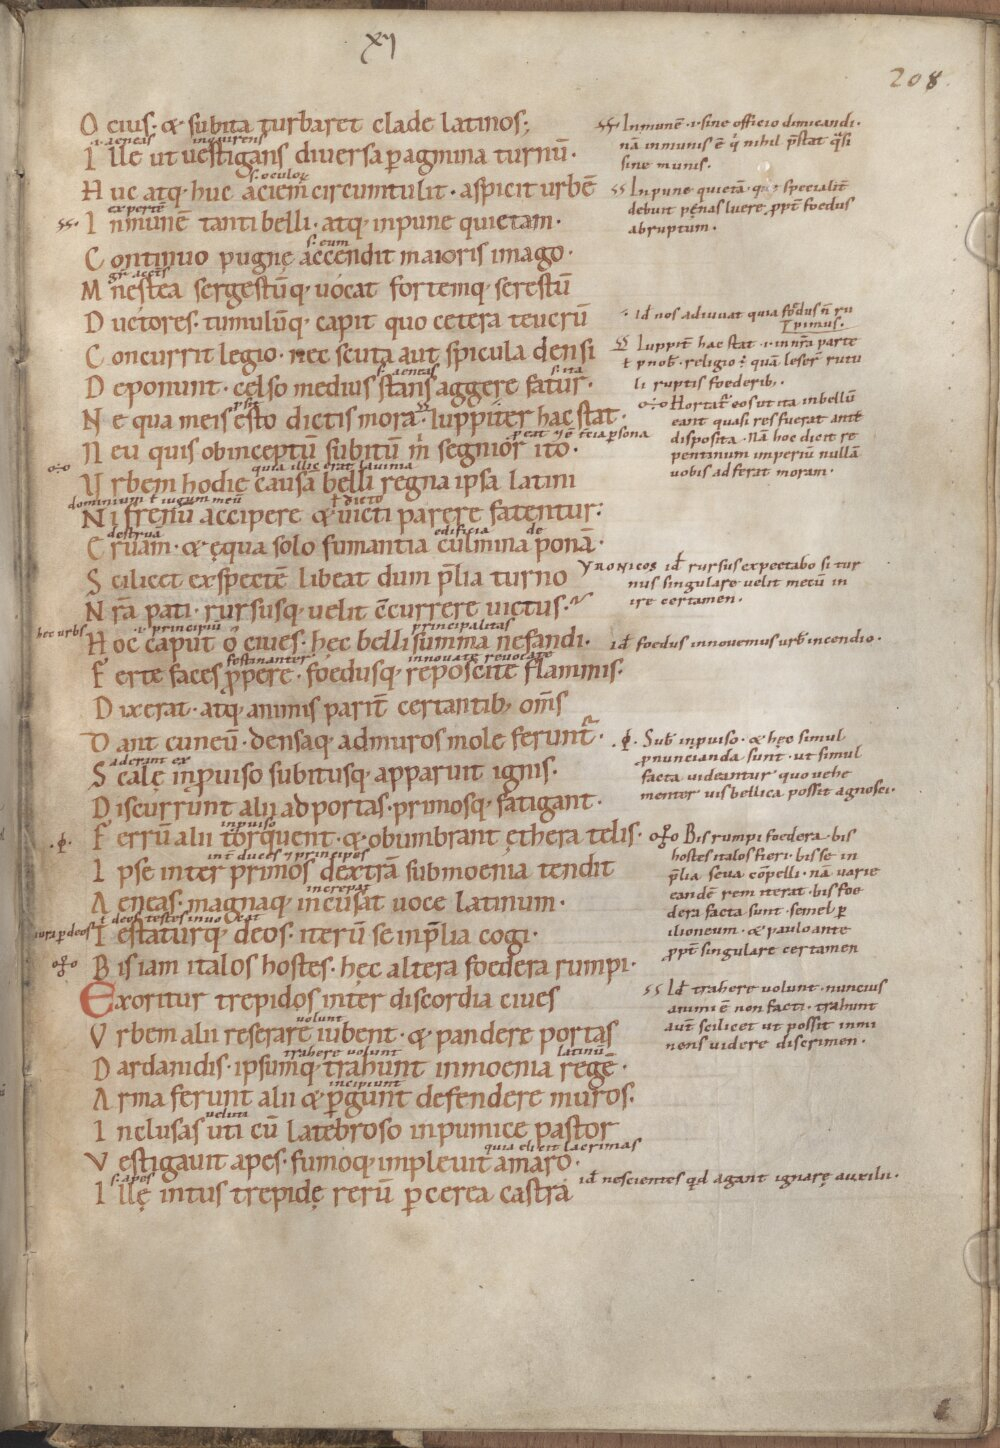 xij
208
O cius · & subita turbaret clade latinos;
.i. aeneas inquirens
I lle ut uestigans diuersa p agmina turnū ·
s. oculoꝝ
H uc atq· huc aciem circumtulit · aspicit urbē
expertē
ss. I nmunē tanti belli · atq· inpune quietam ·
s. eum
C ontinuo pugnę accendit maioris imago ·
gr̄ accts
M nestea sergestūq· uocat fortemq· serestū
D uctores · tumulūq· capit quo cetera teucrū
C oncurrit legio · nec scuta aut spicula densi
s. aeneas s. ita
D eponunt · celso medius stans aggere fatur ·
p sit
N e qua meis esto dictis mora · Iuppiter hac stat ·
N eu quis ob inceptū subitū m̄ segnior ito ·
quia illic erat lauinia
U rbem hodie causā belli regna ipsa latini
dominium ł iugum meū ł dicto
N i frenū accipere & uicti parere fatentur:
destruā edificia de
E ruam · & ęqua solo fumantia culmina ponā ·
S cilicet exspectē libeat dum p̄lia turno
N r̄a pati · rursusq· uelit c̄currere uictus ·
hec urbs .i. principiū principalitas
H oc caput o ciues · hęc belli summa nefandi ·
festinanter innouate reuocate
F erte faces ꝓpere · foedusq· reposcite flammis ·
D ixerat · atq· animis parit̄ certantib; om̄s
D ant cuneū · densaq· ad muros mole ferunt̄ ·
aderant ex
S calę inꝓuiso subitusq· apparuit ignis ·
D iscurrunt alii ad portas · primosq· fatigant ·
inpuiso
.ɸ. F errū alii torquent · & obumbrant ęthera telis ·
int̄ duces ⁊ principes
I pse inter primos dextrā sub moenia tendit
increpat
A eneas · magnaq· incusat uoce latinum ·
ł deos testes inuocat
iura p deos T estaturq· deos · iterū se in p̄lia cogi ·
B is iam italos hostes · hęc altera foedera rumpi ·
Exoritur trepidos inter discordia ciues
uolunt
V rbem alii reserare iubent · & pandere portas
trahere uolunt latinū
D ardanidis · ipsumq· trahunt in moenia regē ·
incipiunt
A rma ferunt alii & pgunt defendere muros ·
uelut
I nclusas uti cū latebroso in pumice pastor
quia elicit lacrimas
V estigauit apes · fumoq· impleuit amaro ·
s. apes
I llę intus trepidę rerū p cerea castra
ss Inmunē · i · sine officio dimicandi ·
nā inmunis ē q̄ nihil p̄stat q̄si
sine munis ·
ss Inpune quietā · specialit̄
debuit pęnas luere ꝓpt̄ foedus
abruptum ·
· id nos adiuuat quia foedus n̄ ru
pimus ·
Iuppit̄ hac stat · i · in nr̄a parte
ł ꝓ nob̄ · religio · quā leser̄ rutu
li ruptis foederib; ·
Hortat̄ eos ut ita in bellū
eant quasi res fuerat ante
disposita · Nā hoc dicit re
pentinum imperiū nullā
uobis adferat moram ·
YRONICOS id̄ rursus expectabo si tur
nus singulare uelit mecū in
ire certamen ·
id̄ foedus innouemus urb̄ incendio ·
.ɸ. Sub̄ inpuiso · & hęc simul
ꝓnuncianda sunt · ut simul
facta uideantur quo uehe
menter uis bellica possit agnosci ·
Bis rumpi foedera · bis
hostes italos fieri · bis se in
p̄lia seua cōpelli · nā uarie
eandē rem iterat · bis foe
dera facta sunt · semel p
ilioneum · & paulo ante
ꝓpt̄ singulare certamen
ss Id̄ trahere uolunt · nuncius
animi ē non facti · trahunt
aut̄ scilicet ut possit inmi
nens uidere discrimen ·
id̄ nescientes qd̄ agant ignarę auxilii ·